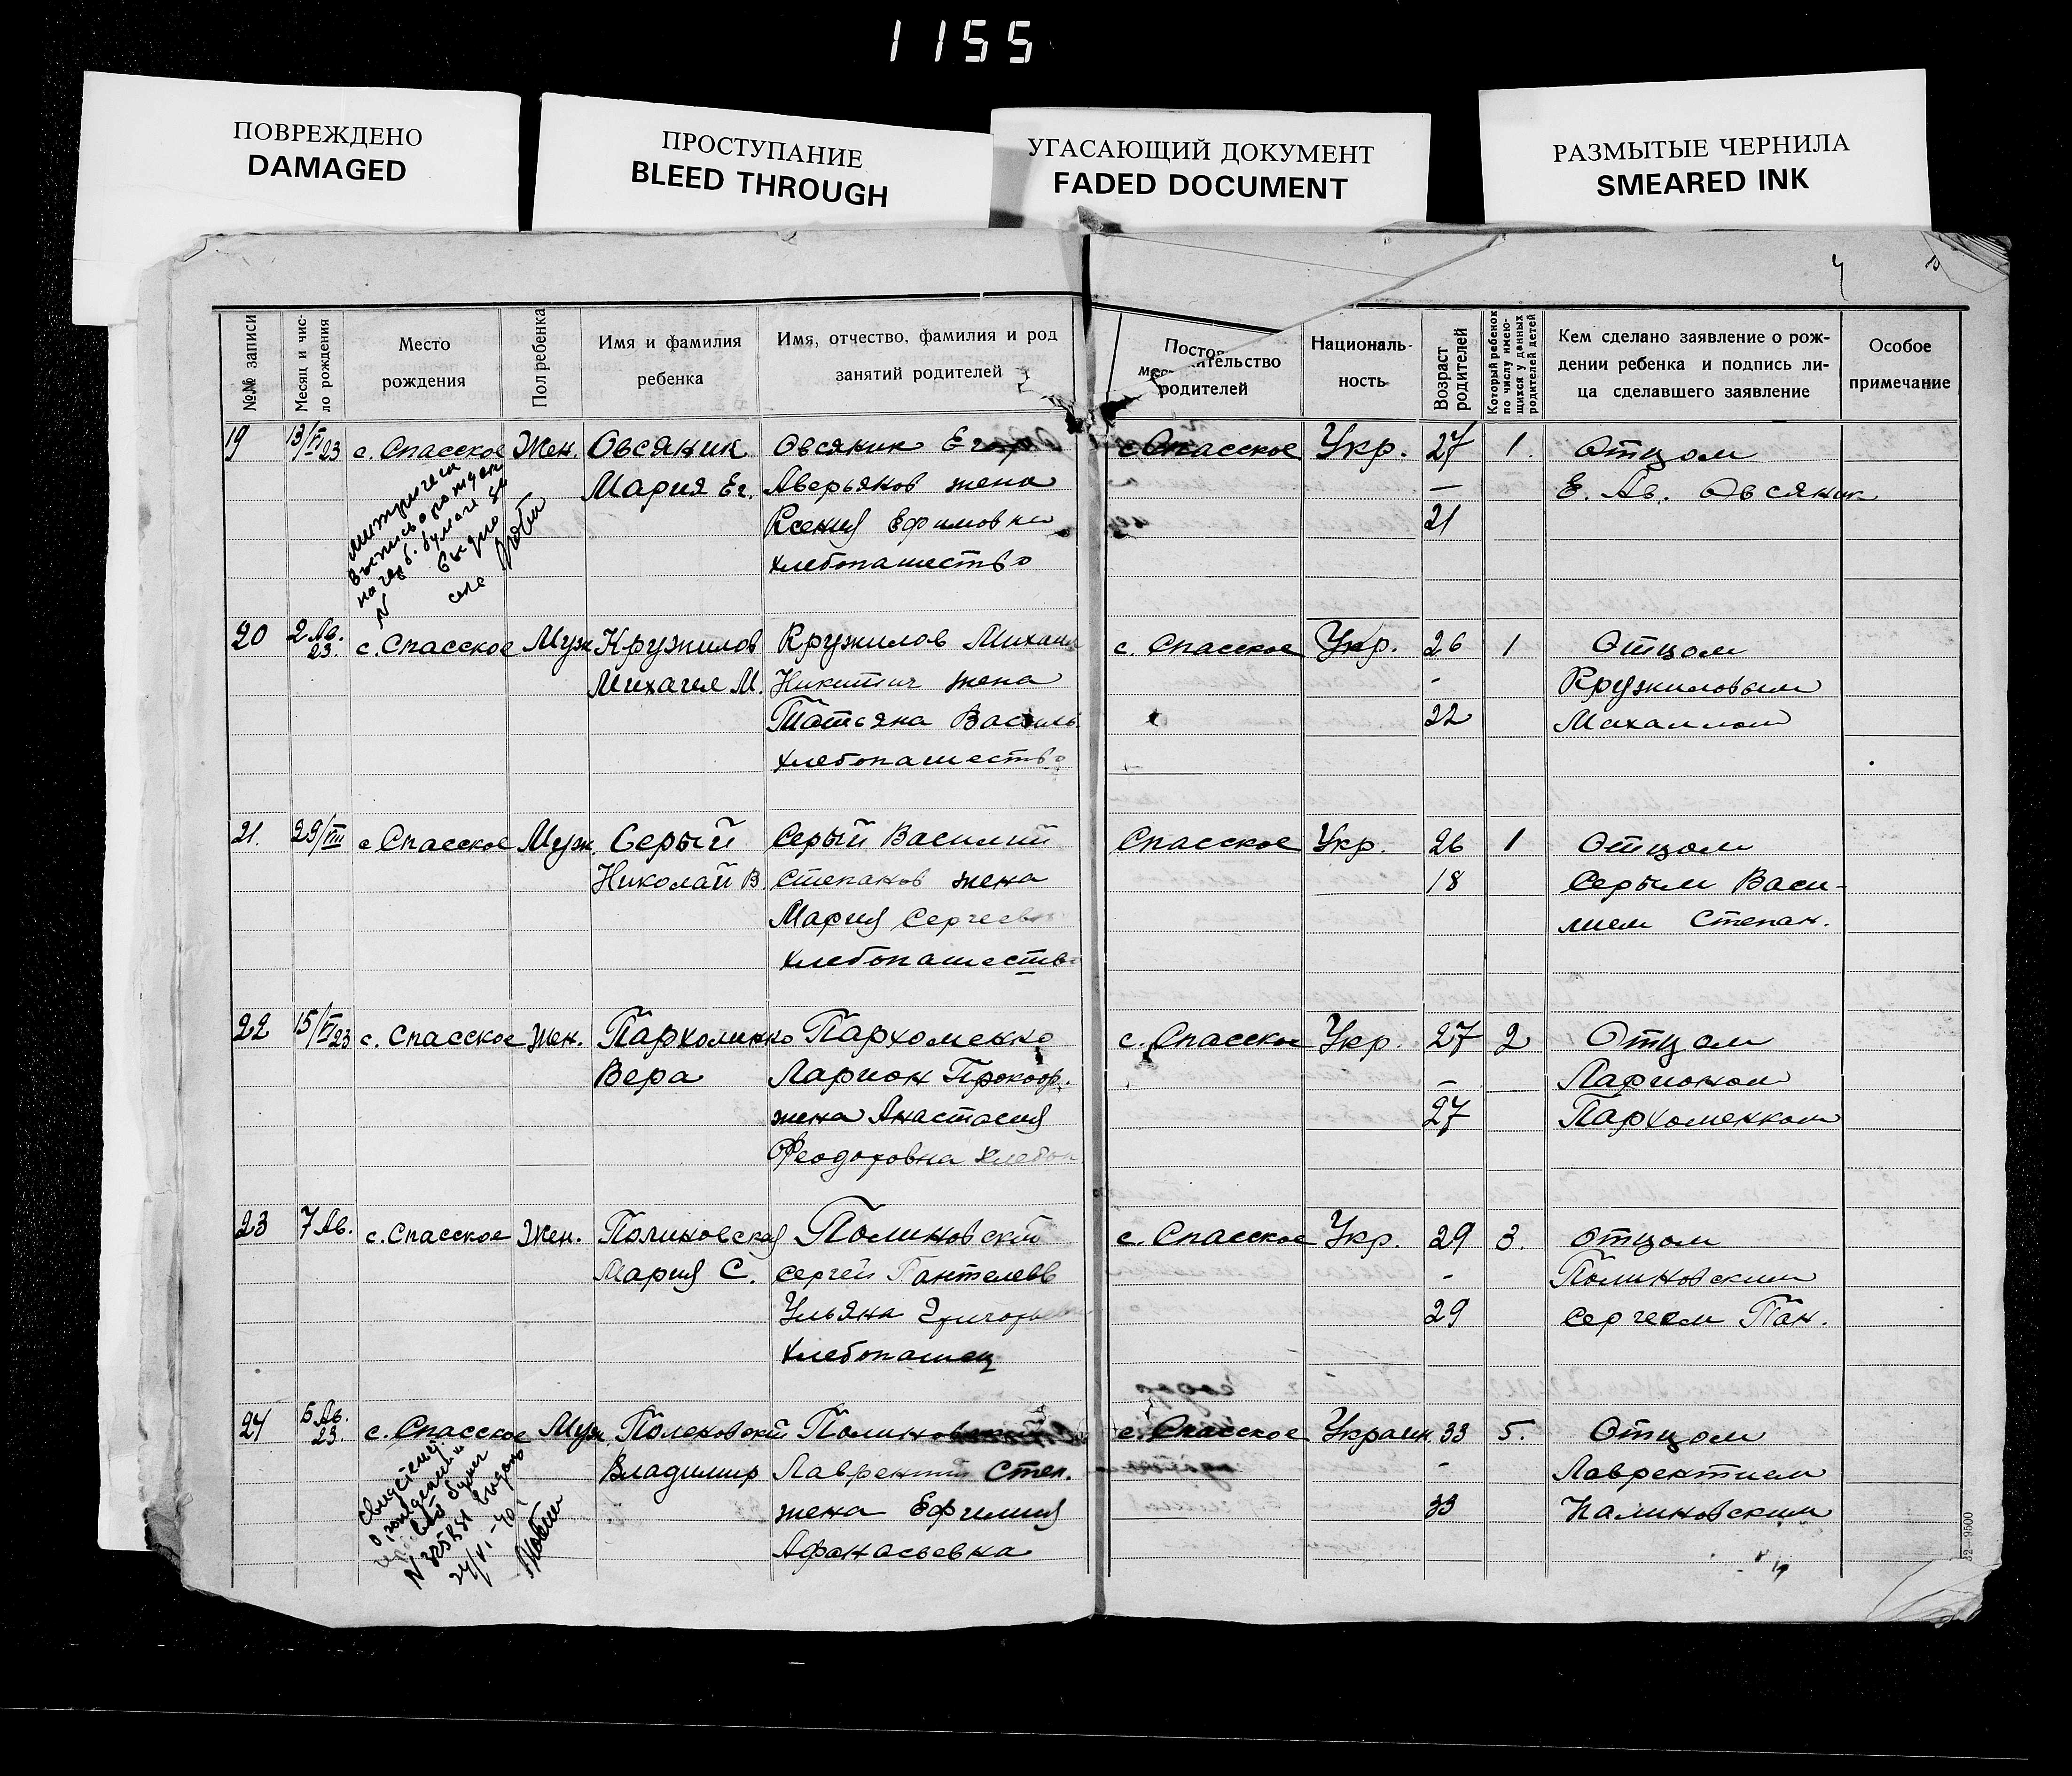 1155
ПОВРЕЖДЕНО
DAMAGED
ПРОСТУПАНИЕ
BLEED THROUGH
УГАСАЮЩИЙ ДОКУМЕНТ
FADED DOCUMENT
РАЗМЫТЫЕ ЧЕРНИЛА
SMEARED INK
№№ записи
Месяц и чис-
ло рождения
Место
рождения
Пол ребенка
Имя и фамилия
ребенка
Имя, отчество, фамилия и род
занятий родителей
родителей
Националь-
ность
Возраст
родителей
Который ребенок
по числу имею-
щихся у данных
родителей детей
Кем сделано заявление о рож-
дении ребенка и подпись ли-
ца сделавшего заявление
Особое
примечание
19 13/VI 23 с. Спасское Жен. Овсяник Овсяник Егор с. Спасское Укр. 27 1. Отцом
Мария Ег. Аверьянов жена — Е. Ав. Овсяник
Ксения Ефимовна 21
хлебопашество
20 2 Ав. 23. с. Спасское Муж Кружилов Кружилов Михаил с. Спасское Укр. 26 1 Отцом
Михаил М. Никитич жена - Кружиловым
Татьяна Василь. 22 Михаилом
хлебопашество
21. 29/VIII с Спасское Муж. Серый Серый Василий Спасское Укр. 26 1 Отцом
Николай В. Степанов жена 18 Серым Васи-
Мария Сергеевн лием Степан.
хлебопашество
22 15/VI 23 с. Спасское Жен. Пархоменко Пархоменко с. Спасское Укр. 27 2 Отцом
Вера Ларион Прокоф. — Ларионом
жена Анастасия 27 Пархоменком
Феодоровна хлебоп
23 7 Ав. с. Спасское Жен. Полиновская Полиновский с. Спасское Укр. 29 3. отцом
Мария С. Сергей Пантелеев - Полиновским
Ульяна Григорьев 29 Сергеем Пан.
хлебопашец
24 5 Ав. 23. с. Спасское Муж Полековский Полиновский с. Спасское Украин 33 5. Отцом
Владимир Лаврентий Степ. - Лаврентием
жена Ефимия 33 Калиновским
Афанасьевна